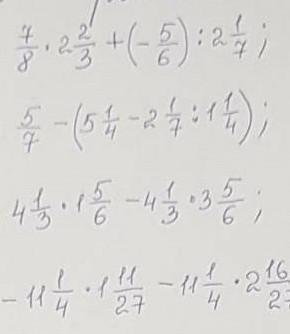 7/8 · 2 2/3 + (- 5/6) : 2 1/7 ;
5/7 - (5 1/4 - 2 1/7 : 1 1/4) ;
4 1/3 · 1 5/6 - 4 1/3 · 3 5/6 ;
- 11 1/4 · 1 11/27 - 11 1/4 · 2 16/27